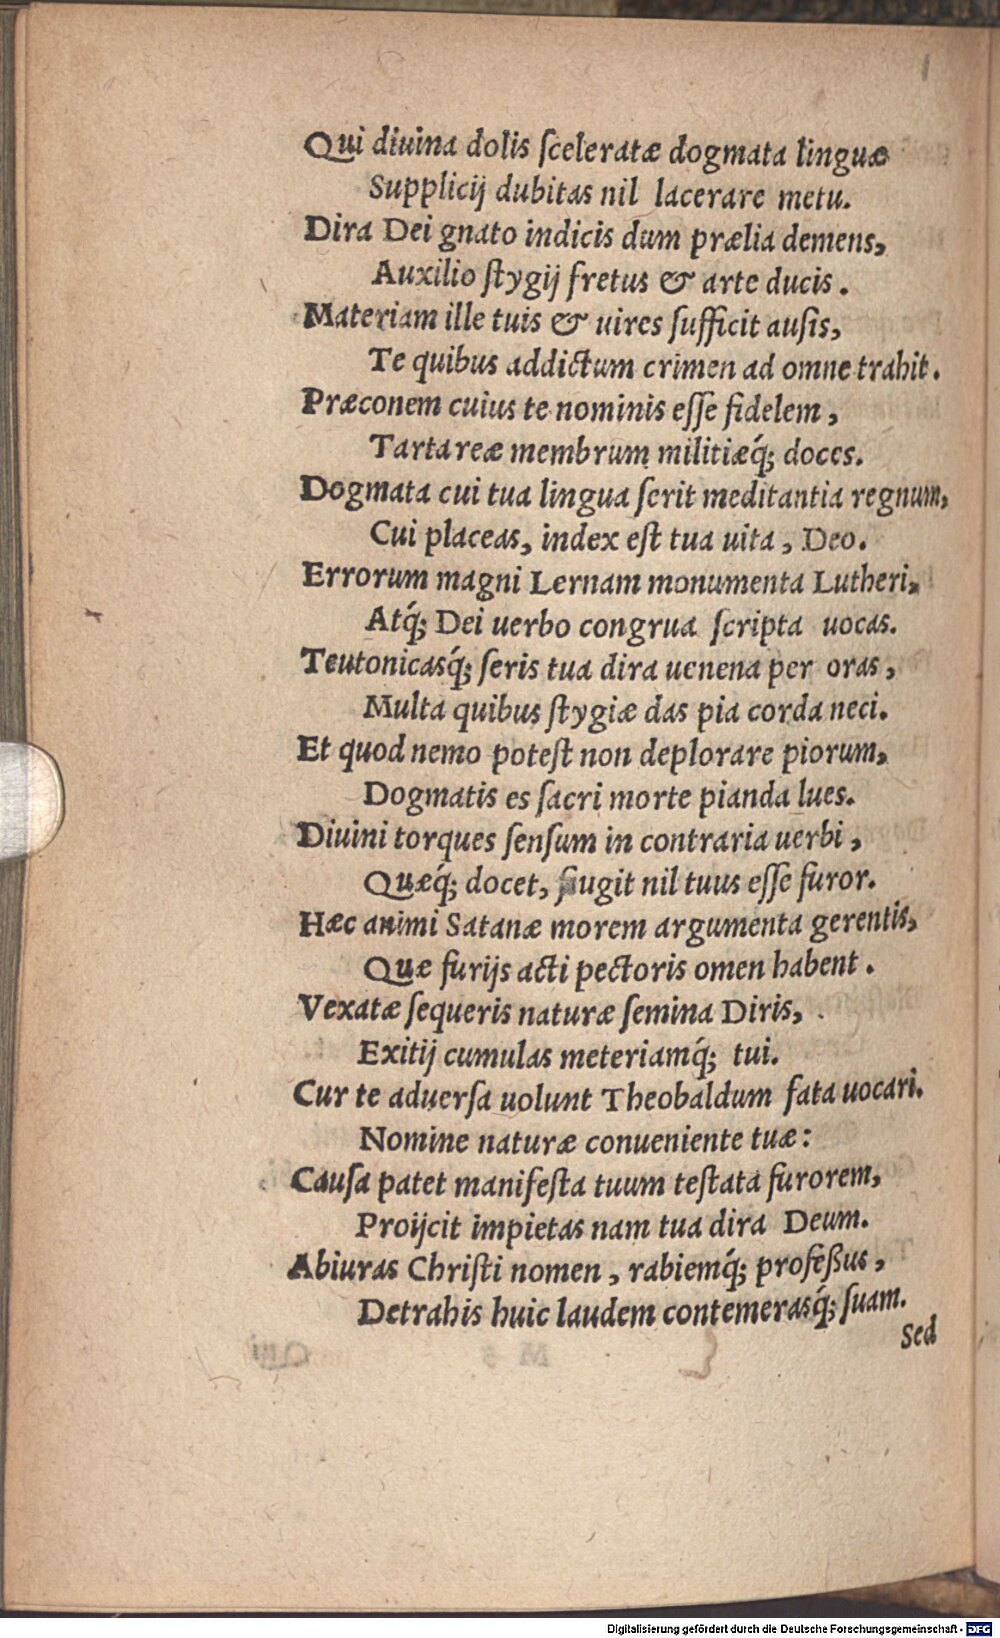 Qui diuina dolis ſceleratæ dogmata linguæ
Supplicij dubitas nil lacerare metu.
Dira Dei gnato indicis dum prælia demens,
Auxilio ſtygij fretus & arte ducis.
Materiam ille tuis & uires ſufficit auſis,
Te quibus addictum crimen ad omne trahit.
Præconem cuius te nominis eſſe fidelem,
Tartareæ membrum militiæq́; doces.
Dogmata cui tua lingua ſerit meditantia regnum,
Cui placeas, index eſt tua uita, Deo.
Errorum magni Lernam monumenta Lutheri,
Atq́; Dei uerbo congrua ſcripta uocas.
Teutonicasq́; ſeris tua dira uenena per oras,
Multa quibus ſtygiæ das pia corda neci.
Et quod nemo poteſt non deplorare piorum,
Dogmatis es ſacri morte pianda lues.
Diuini torques ſenſum in contraria uerbi,
Quæq́; docet, fugit nil tuus eſſe furor.
Hæc animi Satanæ morem argumenta gerentis,
Quæ furijs acti pectoris omen habent.
Vexatæ ſequeris naturæ ſemina Diris,
Exitij cumulas meteriamq́; tui.
Cur te aduerſa uolunt Theobaldum fata uocari.
Nomine naturæ conueniente tuæ:
Cauſa patet manifeſta tuum teſtata furorem,
Proijcit impietas nam tua dira Deum.
Abiuras Chriſti nomen, rabiemq́; profeßus,
Detrahis huic laudem contemerasq́; ſuam.
Sed
Digitalisierung gefördert durch die Deutsche Forschungsgemeinschaft - DFG